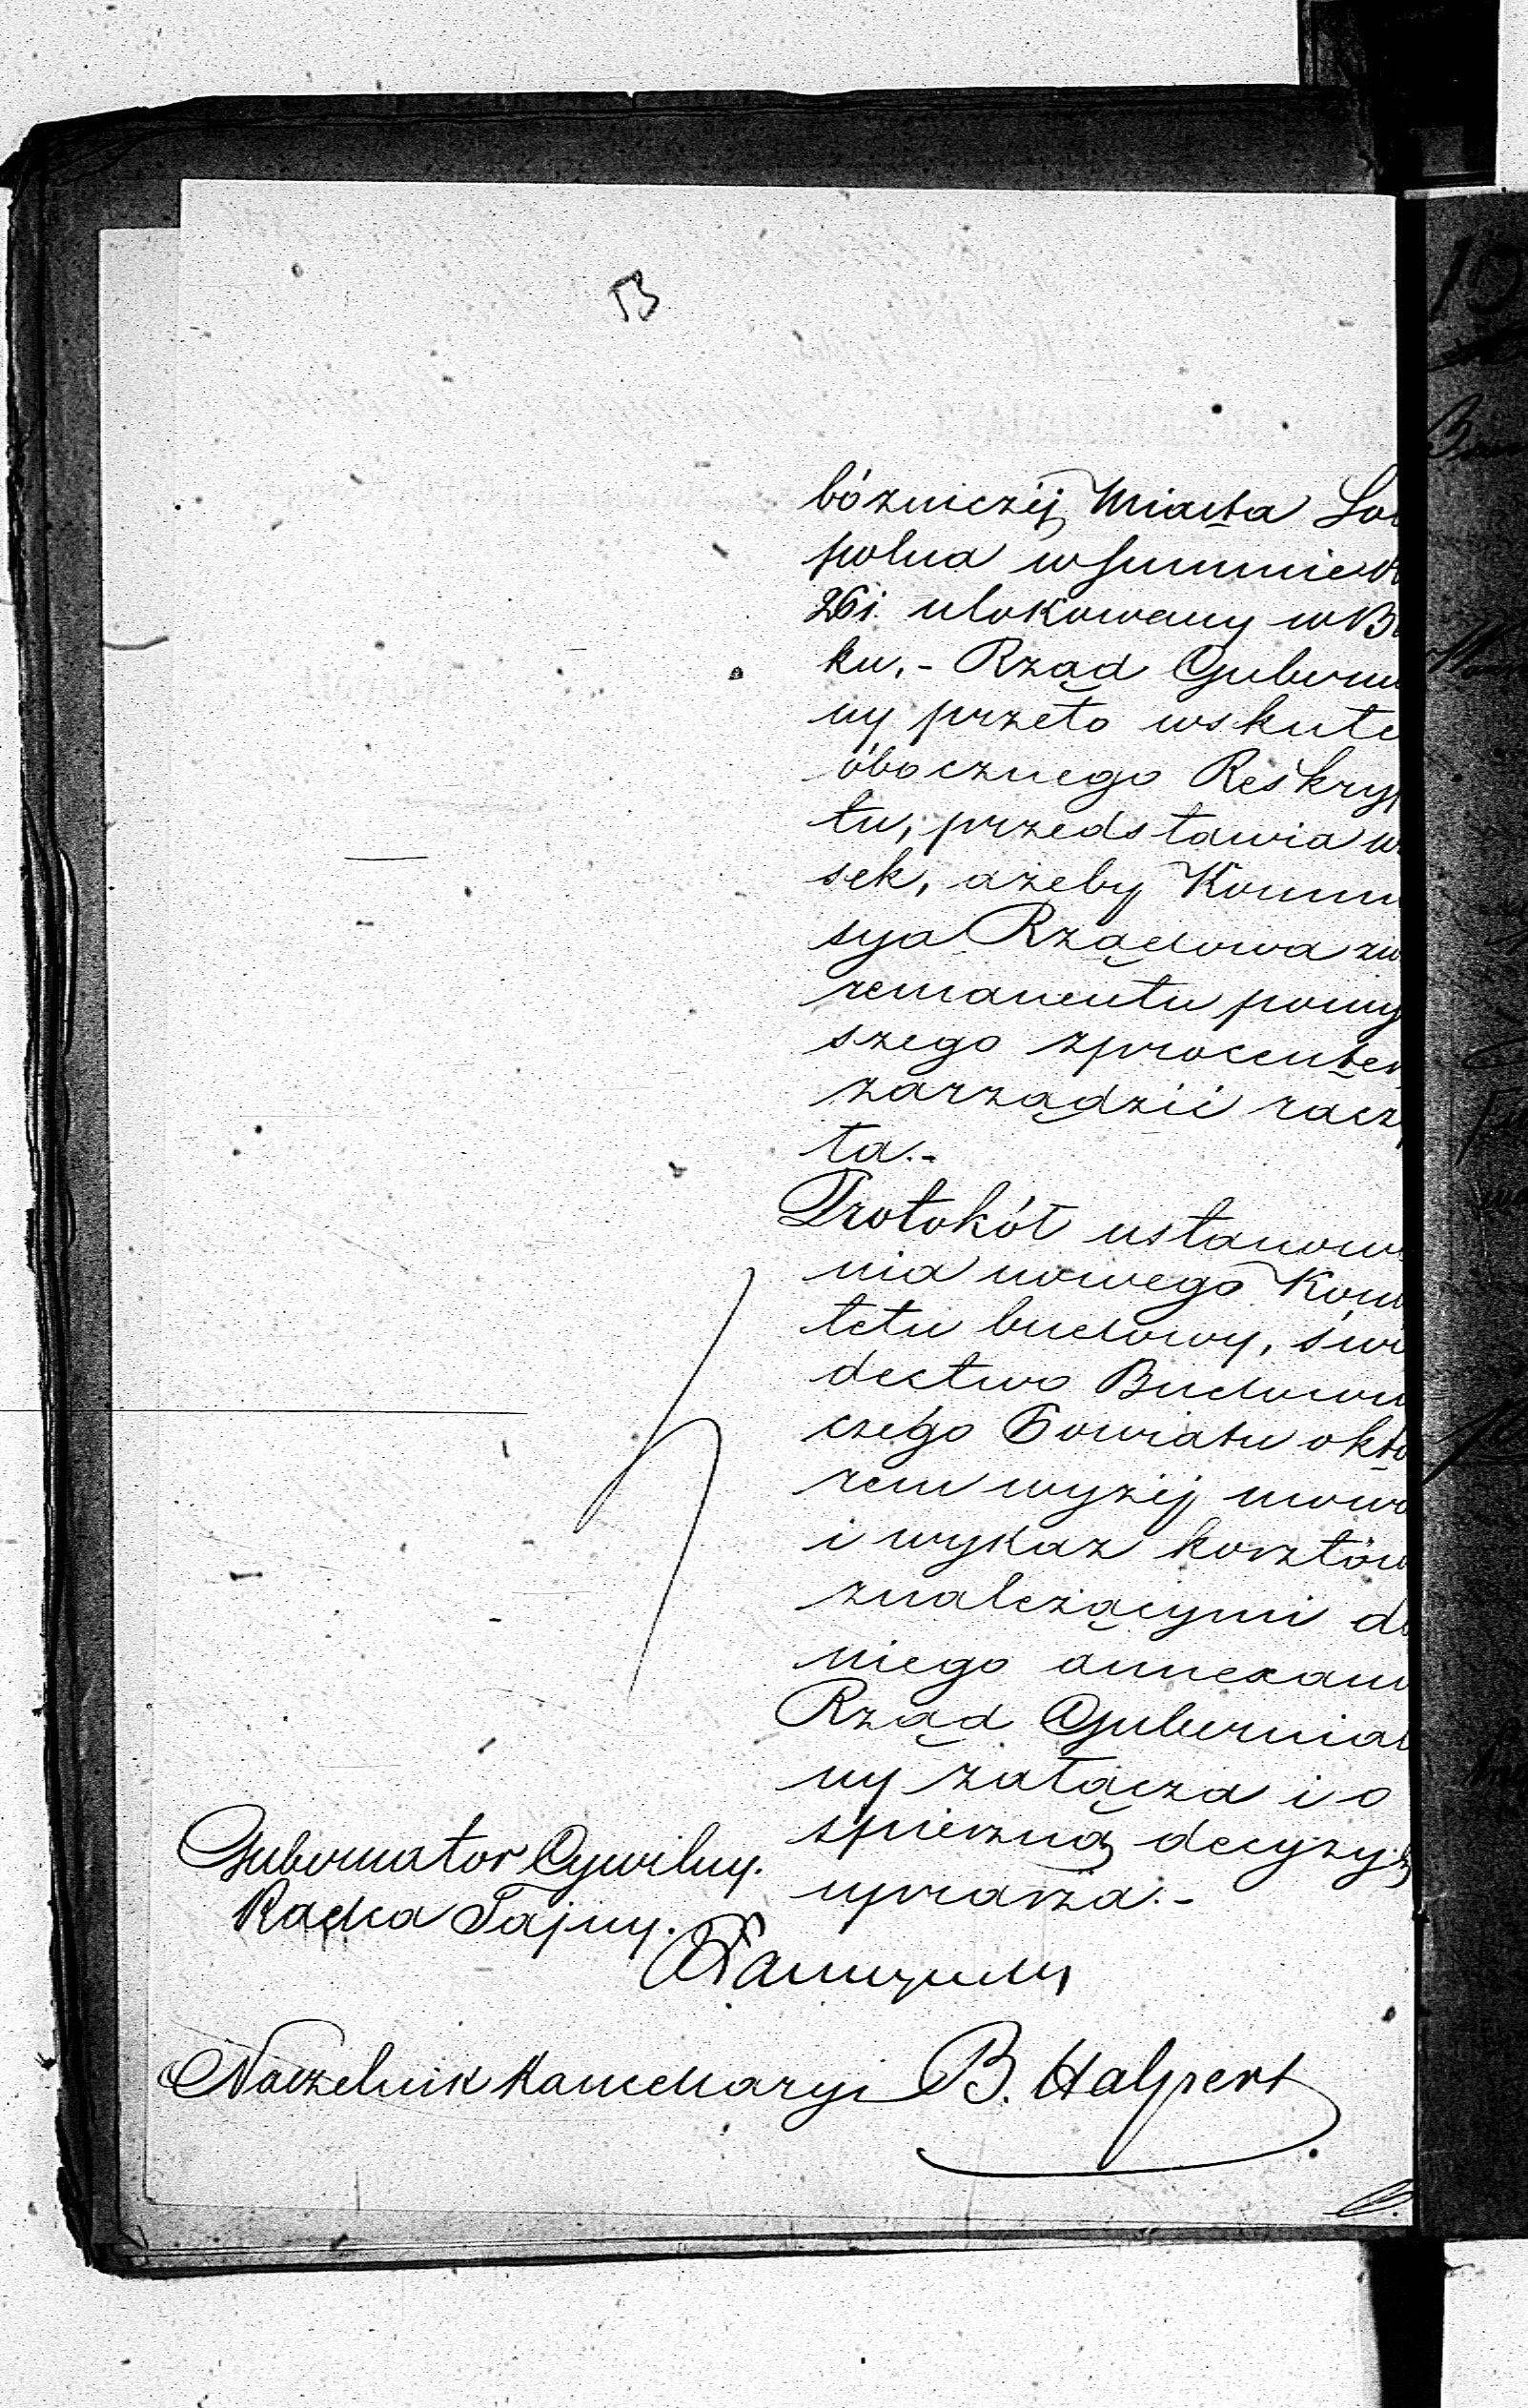 13
bózniczéj Miasta So
polna w Summie
261 ulokowany w B
ku,- Rząd Gubern
ny przeto wskute
óbocznego Reskryp
tu, przedstawia w
sek, ażeby Kommi
sya Rządowa zw
remanentu pomy
szego z procentem
zarządzić raczy
ta.-
Protokół ustanowi
nia nowego Komi
tetu budowy, świ
dectwo Budowni
czego Powiatu o któ
rem wyżej mowa
i wykaz kosztów
z należącymi do
niego annexami
Rząd Gubernial
ny załącza i o
spieszną decyzyą
uprasza.-
Gubernator Cywilny.
Radca Tajny.
Naczelnik Kancellaryi B. Halpert